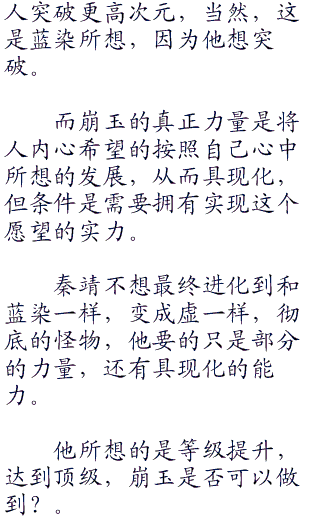 人突破更高次元，当然，这
是蓝染所想，因为他想突
破。
而崩玉的真正力量是将
人内心希望的按照自己心中
所想的发展，从而具现化，
但条件是需要拥有实现这个
愿望的实力。
秦靖不想最终进化到和
蓝染一样，变成虚一样，彻
底的怪物，他要的只是部分
的力量，还有具现化的能
力。
他所想的是等级提升，
达到顶级，崩玉是否可以做
到？。